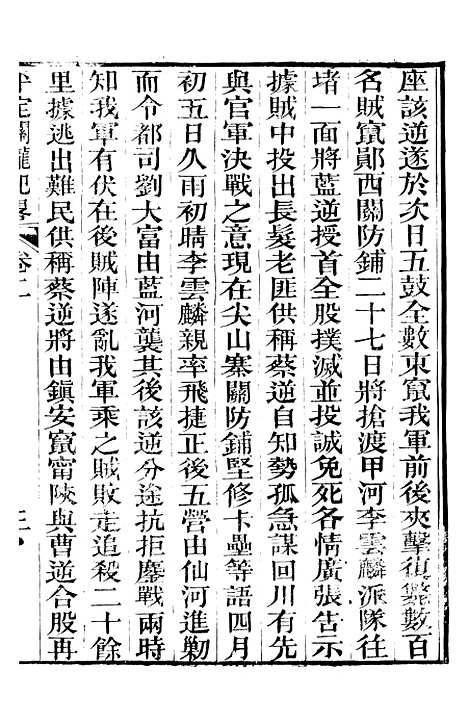 座該逆遂於次日五鼓全數東竄我軍前後夾擊復斃數百
名賊竄鄖西關防鋪二十七日將搶渡甲河李雲麟派隊往
堵一面將藍逆授首全股撲滅並投誠免死各情廣張告示
據賊中投出長髮老匪供稱蔡逆自知勢孤急謀回川有先
與官軍決戰之意現在尖山寨關防鋪堅修卡壘等語四月
初五日久雨初晴李雲麟親率飛捷正後五營由仙河進勦
而令都司劉大富由藍河襲其後該逆分途抗拒鏖戰兩時
知我軍有伏在後賊陣遂亂我軍乘之賊敗走追殺二十餘
里據逃出難民供稱蔡逆將由鎮安竄甯陝與曹逆合股再
平定關隴紀畧 卷二